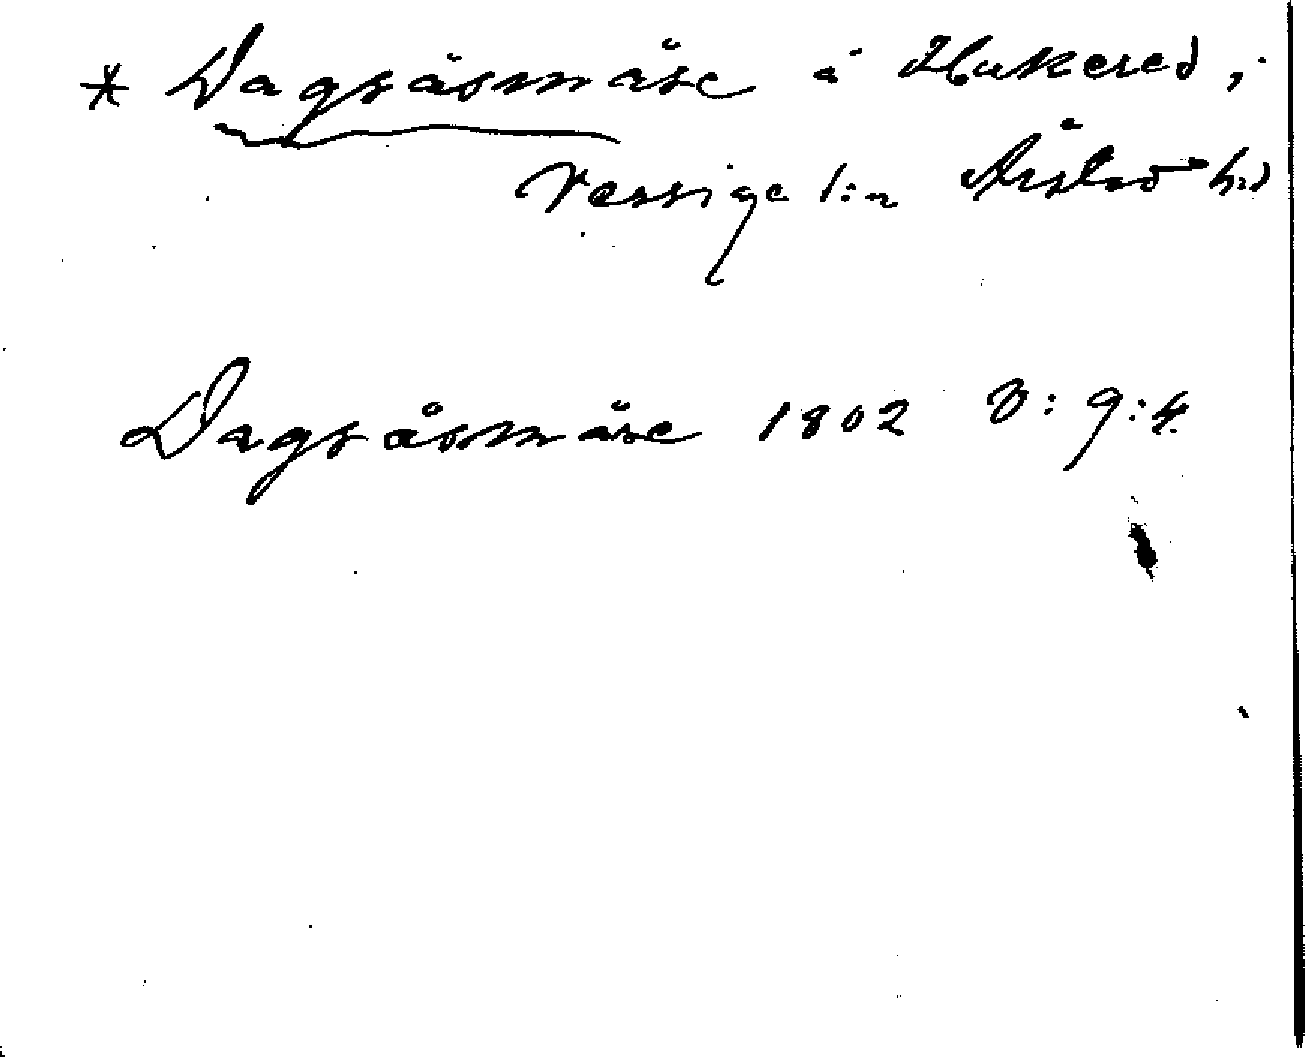 * Dagsåsmåse å Hukered, i
Vessige s:n Årstad h:d
Dagsåsmåse 1802 B:9:4.